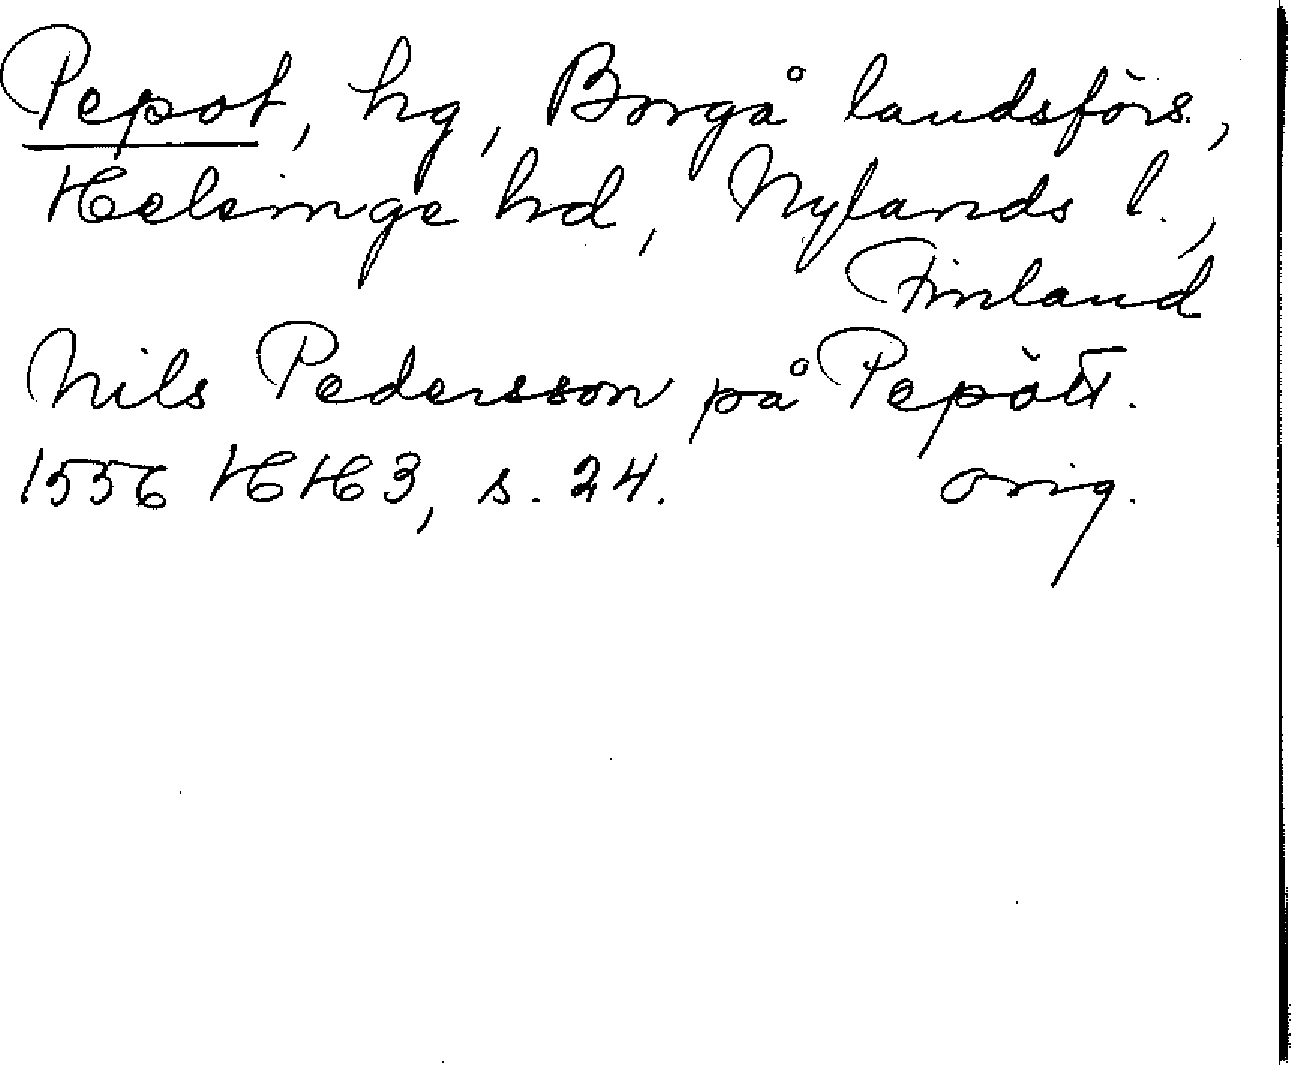 Pepot, hg, Borgå landsförs.,
Helsinge hd, Nylands l.,
Finland
Nils Pedersson på Pepòtt.
1556 HH3, s. 24. orig.